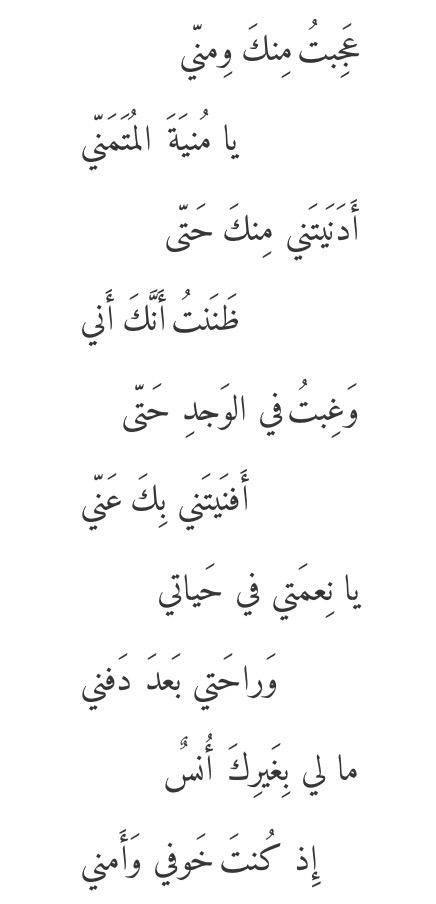 عَجِبتُ مِنكَ وِمنّي
يا مُنيَةَ المُتَمَنّي
أَدَنَيتَني مِنكَ حَتّى
ظَنَنتُ أَنَّكَ أَني
وَغِبتُ في الوَجدِ حَتّى
أَفنَيتَني بِكَ عَنّي
يا نِعمَتي في حَياتي
وَراحَتي بَعدَ دَفني
ما لي بِغَيرِكَ أُنسٌ
إِذ كُنتَ خَوفي وَأَمني